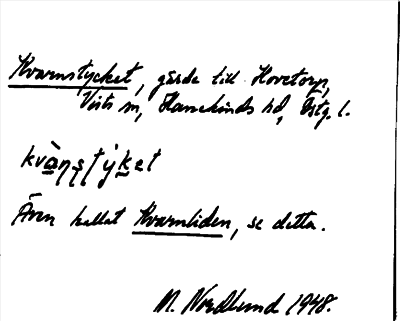 Kvarnstycket, gärde till Hovetorp,
Vists sn, Hanekinds hd, Östg. l.
kvà̱ṇṣtýk̲et
Även kallat Kvarnliden, se detta.
M. Nordlund 1948.